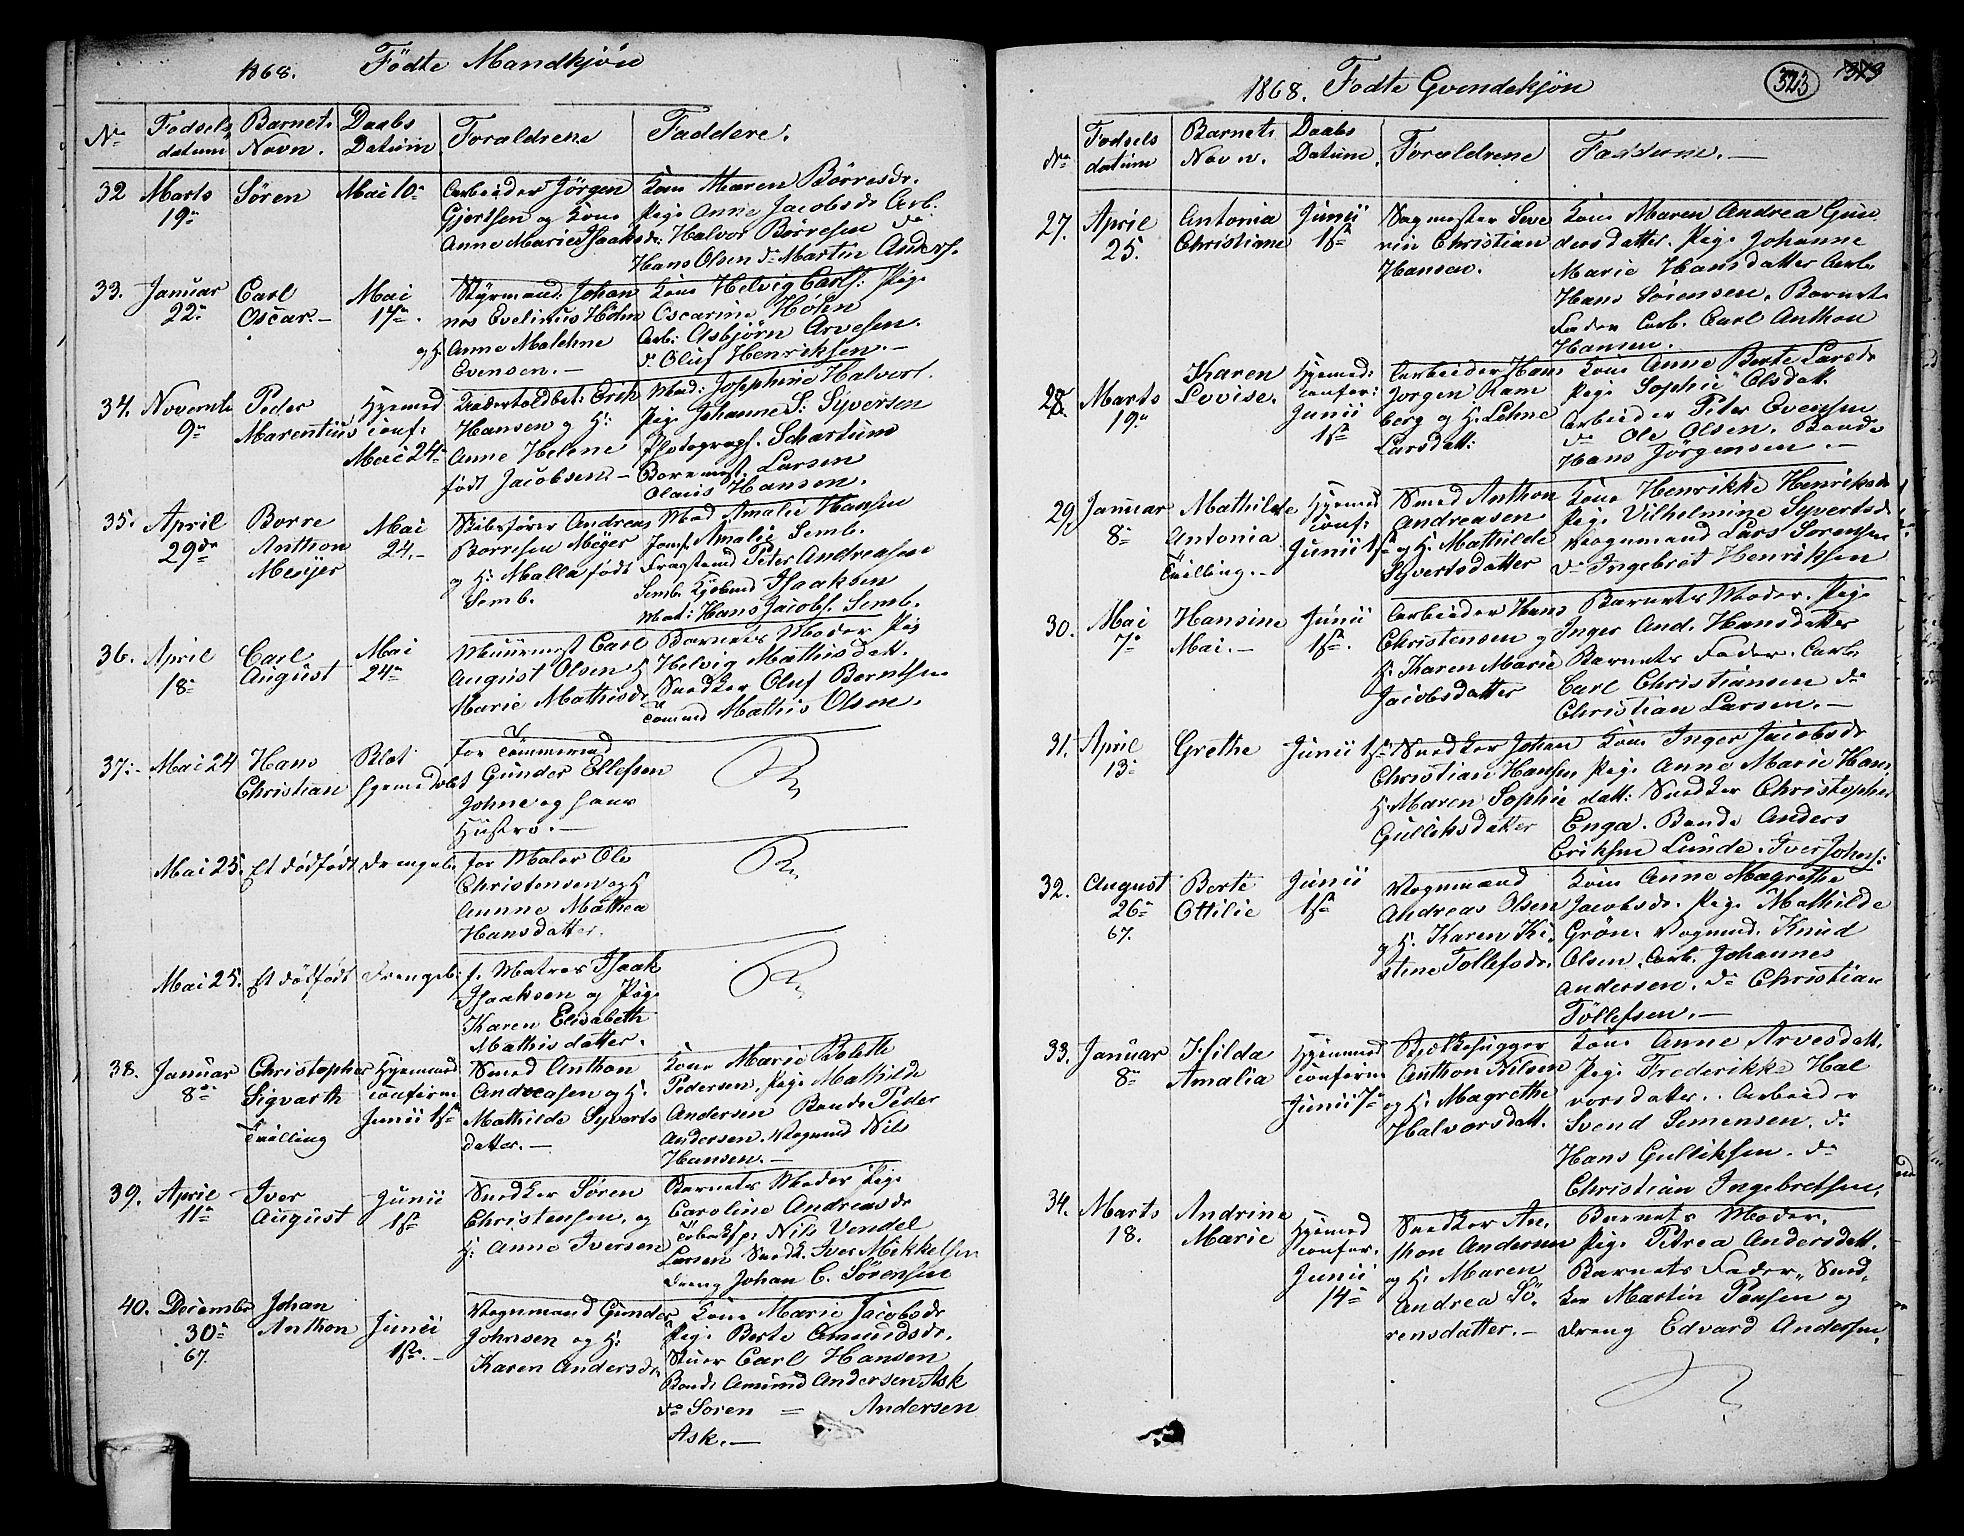 1868. Födte Mandkjön
No Födsels datum Barnets Navn. Daabs Datum Forældrene Faddere.
32 Marts 19de Sören Mai 10de
Arbeider Jörgen
Gjertsen og Kone
Anne Marie Isaaksdr.
Kone Maren Börresdr.
Pige Anne Jacobsdr Arb:
Halvor Börresen do
Hans Olsen do Martin Anders.
33. Januar 22de Carl Oscar.— Mai 17de
Styrmand: Johan
nes Evelinus Holen
og H: Anne Malehne
Evensen.—
Kone Helvig Carls: Pige
Oscarine Holen
Arb: Asbjörn Arvesen.
do Oluf Henriksen.—
34. Novembr 9de Peder Marentius Hjemmed conf: Mai 24de
Hansen og H:
Anne Helene
född Jacobsen.—
Mad: Josephine Halvors.
Pige Johanne S: Syversen
Photograph. Schartum
Larsen
Olaus Hansen.
35. April 29de Borre Anthon Meyer Mai 24.—
Skibsförer Andreas
Borresen Meyer
og H: Malla född
Semb.
Mad Amalie Hansen
Jomf. Amalie Semb.
Peter Andreasen
Semb. Isaaksen
Mat: Hans Jacobs. Semb.
36. April 18de Carl August Mai 24de
Muurmest Carl
August Olsen H
Marie Mathisdr
Barnets Moder Pig
Helvig Mathisdat.
Snedker Oluf Berntsen
Tömmd Mathis Olsen.
37.— Mai 24 Hans Christian Blot hjemmedöbt
for Tömmermd
Gunder Ellefsen
Johne og hans
Hustro.—
Mai 25. Et dödfödt Drengeb.
for Maler Ole
Christensen og H
Annne Mathea
Hansdatter.
Mai 25. Et dödfödt Drengeb:
f. Matros Isaak
Isaaksen og Pige
Karen Elisabeth
Mathisdatter.
38. Januar 8de Christopher Sigvarth Tvilling Hjemmed confirm Junii 1ste
Smed Anthon
Andreasen og H:
Mathilde Syverts
datter.—
Kone Marie Bolette
Pedersen. Pige Mathilde
Andersen Bonde Peder
Andersen. Vognmd Nils
Hansen.—
39. April 11te Iver August Junii 1ste
Snedker Sören
Christensen. og
H: Anne Iversen
Barnets Moder Pige
Caroline Andreasdr
Nils Vendel
Larsen Snedk. Iver Mikkelsen
Dreng Johan C. Sörensen
40. Decembr 30te 67. Johan Anthon Junii 1ste.—
Vognmand Gunder
Johnsen og H:
Karen Andersdr.
Kone Marie Jacobsdr
Pige Berte Amundsdr.
Stuer Carl Hansen
Bonde Amund Andersen Ask
do Soren = Andersen
Ask.—
1868. Födte Qvindekjön
323 319
No Födsels datum Barnets Navn. Daabs Datum. Forældrene Faddere.—
27. April 25. Antonia Christiane Junii 1ste
Sagmester Seve
rin Christian
Hansen.
Kone Maren Andrea Gun
dersdatter. Pige Johanne
Marie Hansdatter Arb.
Hans Sörensen. Barnets
Fader Arb. Carl Anthon
Hansen.
28. Marts 19de Karen Lovise. Hjemmed: confir: Junii 1ste
Arbeider Hans
Jörgen Ram
berg og H. Lehne
Larsdatt:
Kone Anne Berte Larsdr
Pige Sophie Olsdatt.
Arbeider Peter Evensen
do Ole Olsen. Bonde
Hans Jörgensen.—
29. Januar 8de Mathilde Antonia Tvilling.— Hjemmed conf: Junii 1ste
Smed Anthon
Andreasen
og H. Mathilde
Syvertsdatter
Kone Henrikke Henriksdr
Pige Vilhelmine Syvertsdr
Vognmand Lars Sörensen
do Ingebret Henriksen
30. Mai 7de Hansine Mai.— Junii 1ste.
Arbeider Hans
Christensen og
H. Karen Marie
Jacobsdatter
Barnets Moder. Pige
Inger And. Hansdatter
Barnets Fader. Arb.
Carl Christiansen do
Christian Larsen.—
31. April 13de Grethe Junii 1ste
Snedker Johan
Christian Hansen
H. Maren Sophie
Gulliksdatter
Kone Inger Jacobsdr
Pige Anne Marie Hans
datt: Snedker Christopher
Enga. Bonde Anders
Eriksen Lunde. Iver Johans:
32. August 26de 67. Berte Ottilie Junii 1ste
Vognmand
Andreas Olsen
og H. Karen Ki
stene Tollefsdr.
Kone Anne Magrethe
Jacobsdr. Pige Mathilde
Grön. Vognmd. Knud
Olsen. Arb. Johannes
Andersen. do Christian
Töllefsen.—
33. Januar 8de Hilda Amalia Hjemmed confirm Junii 7de
Bielkehugger
Anthon Nilsen
og H: Magrethe
Halvorsdatt.
Kone Anne Arvesdatt.
Pige Frederikke Hal
vorsdatter. Arbeider
Svend Semensen. do
Hans Gulliksen. do
Christian Ingebretsen.
34. Marts 18. Andrine Marie Hjemmed confir. Junii 14de
Snedker An
thon Andersen
og H. Maren
Andrea Sö
rensdatter.—
Barnets Moder.
Pige Petrea Andersdatt.
Barnets Fader. Sned
ker Martin Pausen og
Dreng Edvard Andersen.